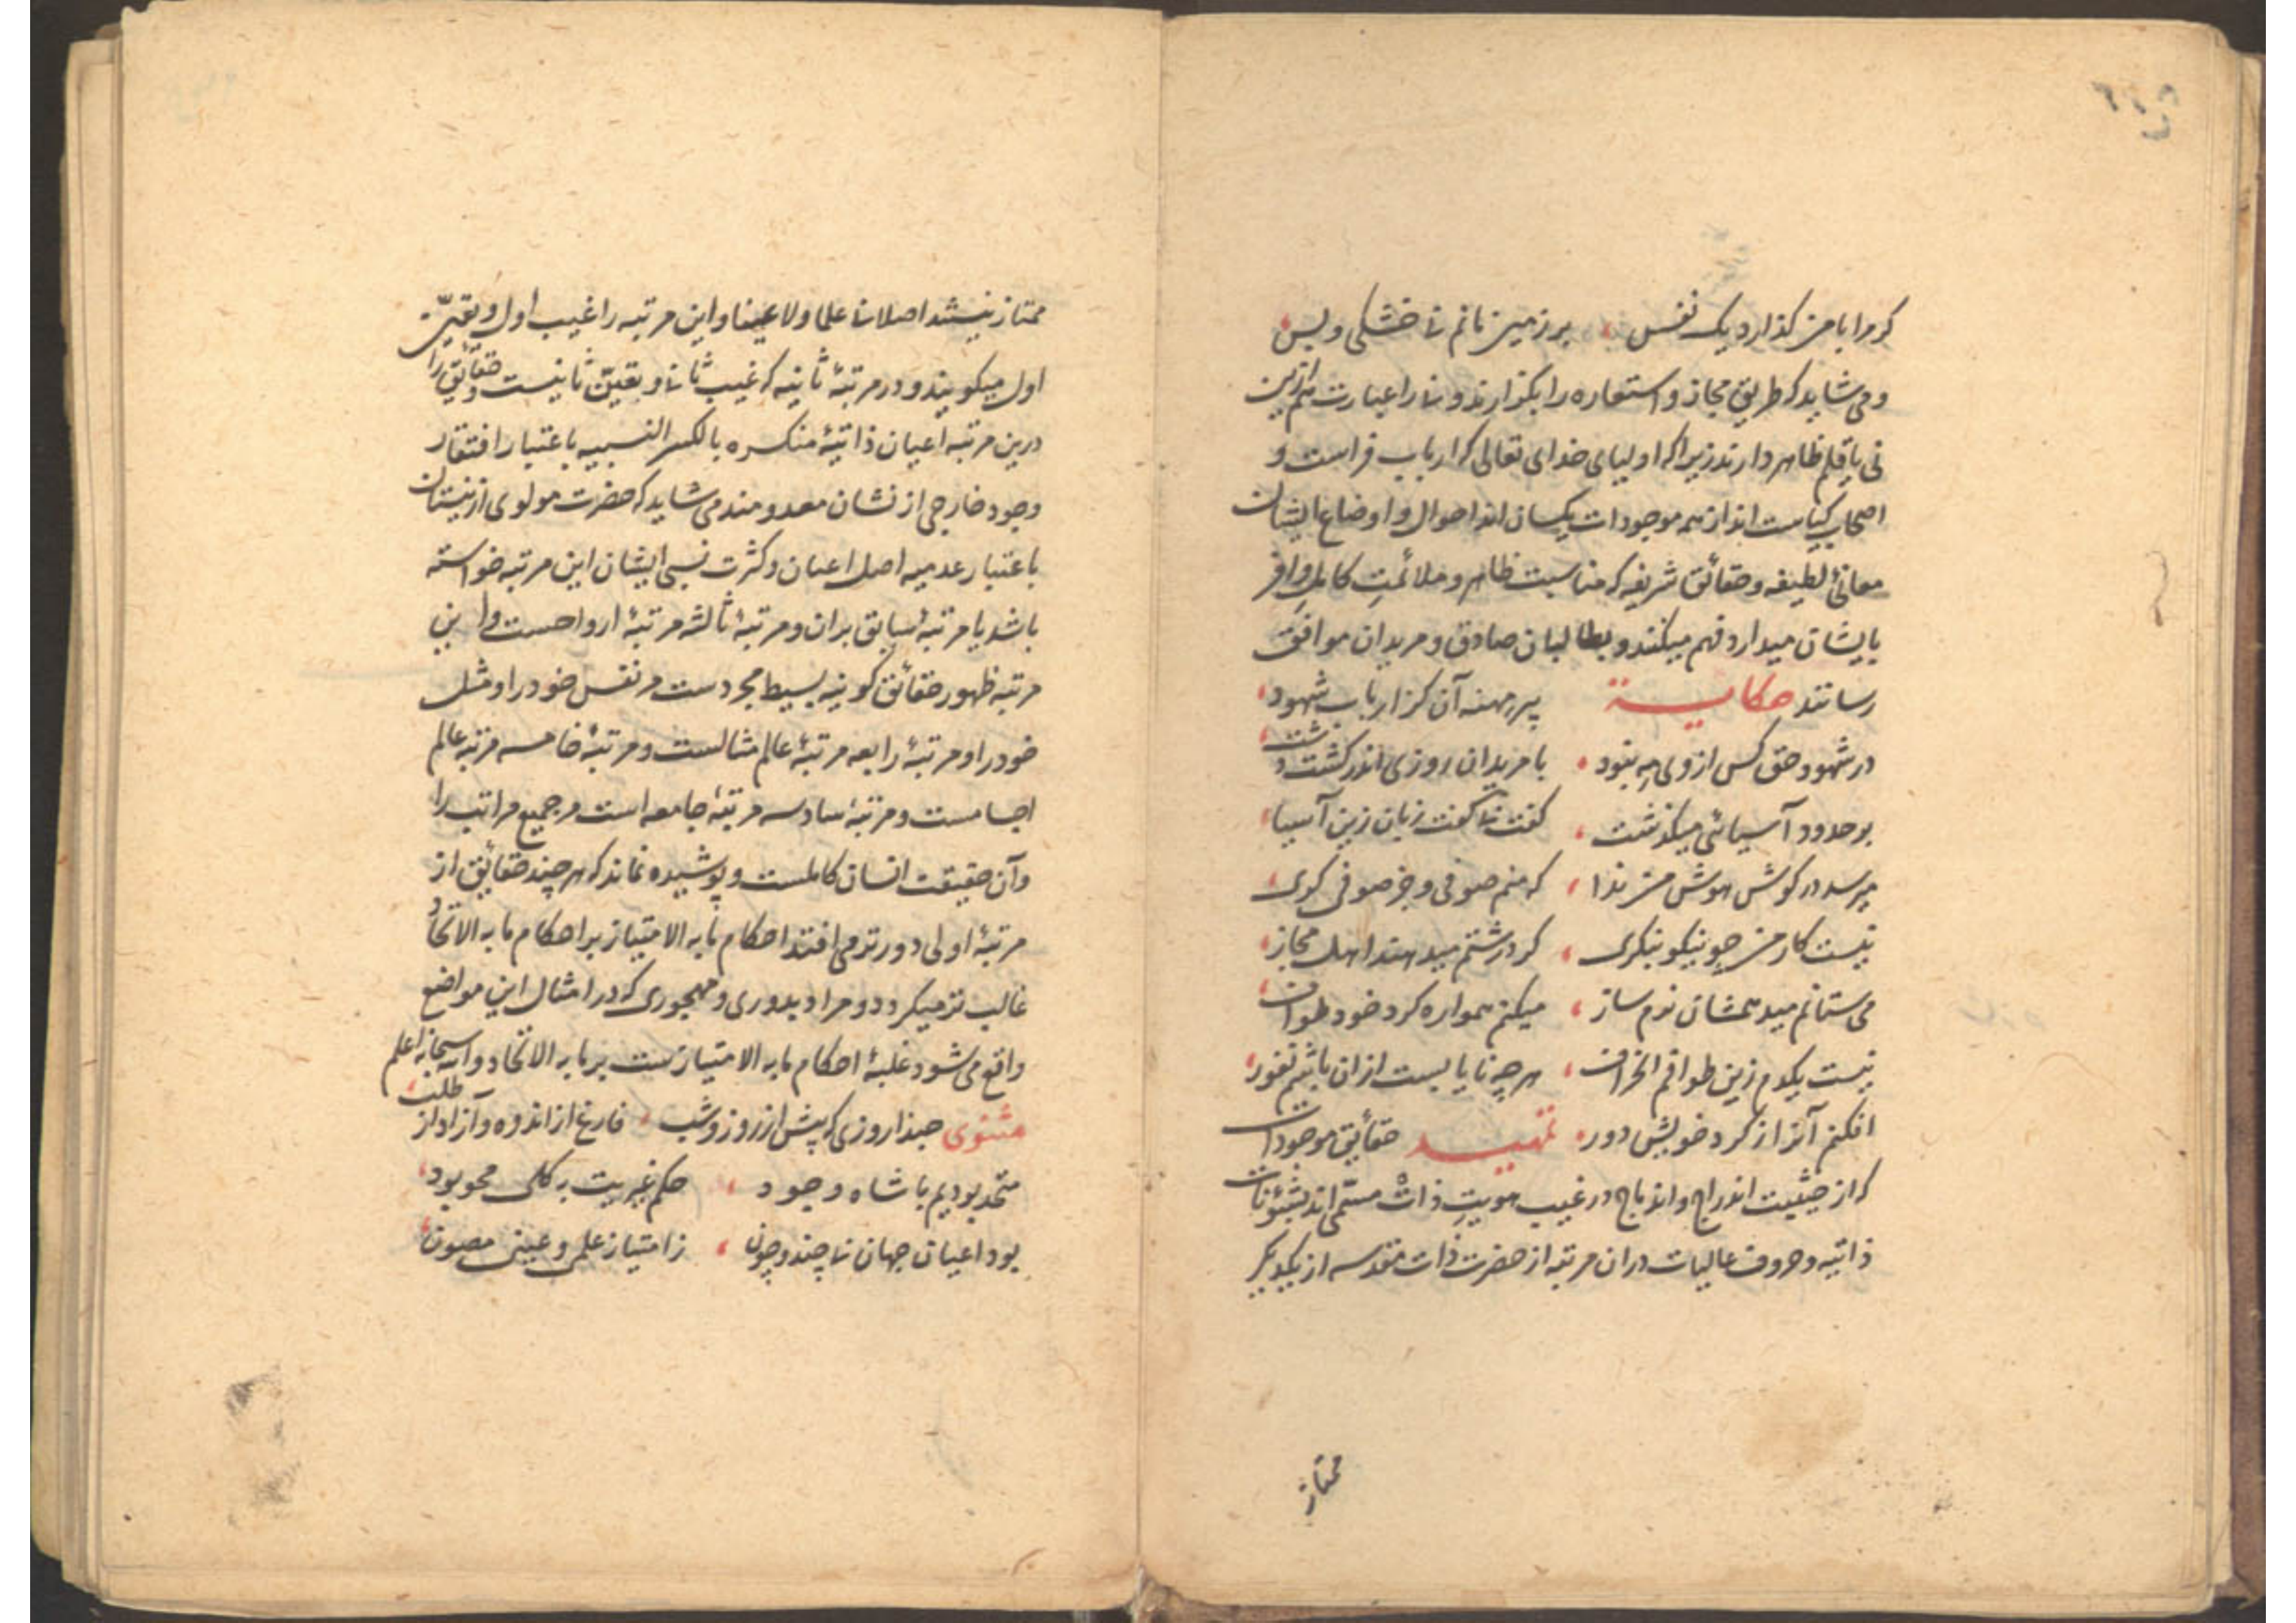 کر مرا با من گذارد یک نفس ، بر زمین مانم نی خشکی و بس
و می شاید که طریق مجاز و استعاره را بگذارند و نی را عبارت هم ازین
نی یا قلم ظاهر دارند زیرا که اولیای خدای تعالی که ارباب فراست و
اصحاب کیاست اند از همه موجودات یکسان اند احوال و اوضاع ایشان
معانئ لطیفه و حقائق شریفه که مناسبت ظاهر و ملائمت کامل وافر
بایشان میدارد فهم میکنند و بطالبان صادق و مریدان موافق
رسانند حکایة پیر مهنه آن کز ارباب شهود
در شهود حق کس از وی مه نبود ٠ با مریدان روزی اندر کشت و دشت
بر حدود آسیائی میکذشت ، کفت نا کفت زبان زین آسیا
میرسد در کوش هوش من ندا ، که منم صوفی و جز صوفی کری
نیست کار من چو نیکو بنکری ، کر درشتم میدهند اهل مجاز
می ستانم میدهمشان نرم ساز ، میکنم همواره کرد خود طواف
نیست یکدم زین طوافم انحراف ، هر چه نابایست ازان باشم نفور
افکنم آنرا ز کرد خویش دور ٠ تمهید حقایق موجودات
که از حیثیت اندراج و اندماج در غیب هویت ذات مسمی اند بشئونات
ذاتیه و حروف عالیات دران مرتبه از حضرت ذات مقدسه از یکدیکر
ممتاز
ممتاز نیستند اصلا نا علما ولا عینا و این مرتبه را غیب اول و تعین
اول میکویند و در مرتبهٔ ثانیه که غیب ثانی و تعین ثانیست حقائق را
درین مرتبه اعیان ذاتیهٔ منکسره بالکسر النسبیه باعتبار افتقار
وجود خارجی از نشان معدومند می شاید که حضرت مولوی از نیستان
باعتبار عدمیه اصل اعیان و کثرت نسبی ایشان این مرتبه خواسته
باشد یا مرتبهٔ سابق بران و مرتبهٔ ثالثه مرتبهٔ ارواحست و این
مرتبه ظهور حقائق کونیه بسیط مجردست مر نفس خود را و مثل
خود را و مرتبهٔ رابعه مرتبهٔ عالم مثالست و مرتبهٔ خامسه مرتبه عالم
اجسامست و مرتبهٔ سادسه مرتبهٔ جامعه است مر جمیع مراتب را
و آن حقیقت انسان کاملست و پوشیده نماند که هر چند حقائق از
مرتبهٔ اولی دورتر می افتند احکام ما به الامتیاز بر احکام ما به الاتحاد
غالب تر میکردد و مراد بدوری و مهجوری که در امثال این مواضع
واقع می شود غلبهٔ احکام ما به الامتیازست بر ما به الاتحاد والله سبحانه اعلم
مثنوی حبذا روزی که پیش از روز و شب ، فارغ از اندوه و آزاد از طلب
متحد بودیم با شاه وجود ، حکم غیریت به کلی محو بود
بود اعیان جهان نا چند و چون ، ز امتیاز علمی و عینی مصون